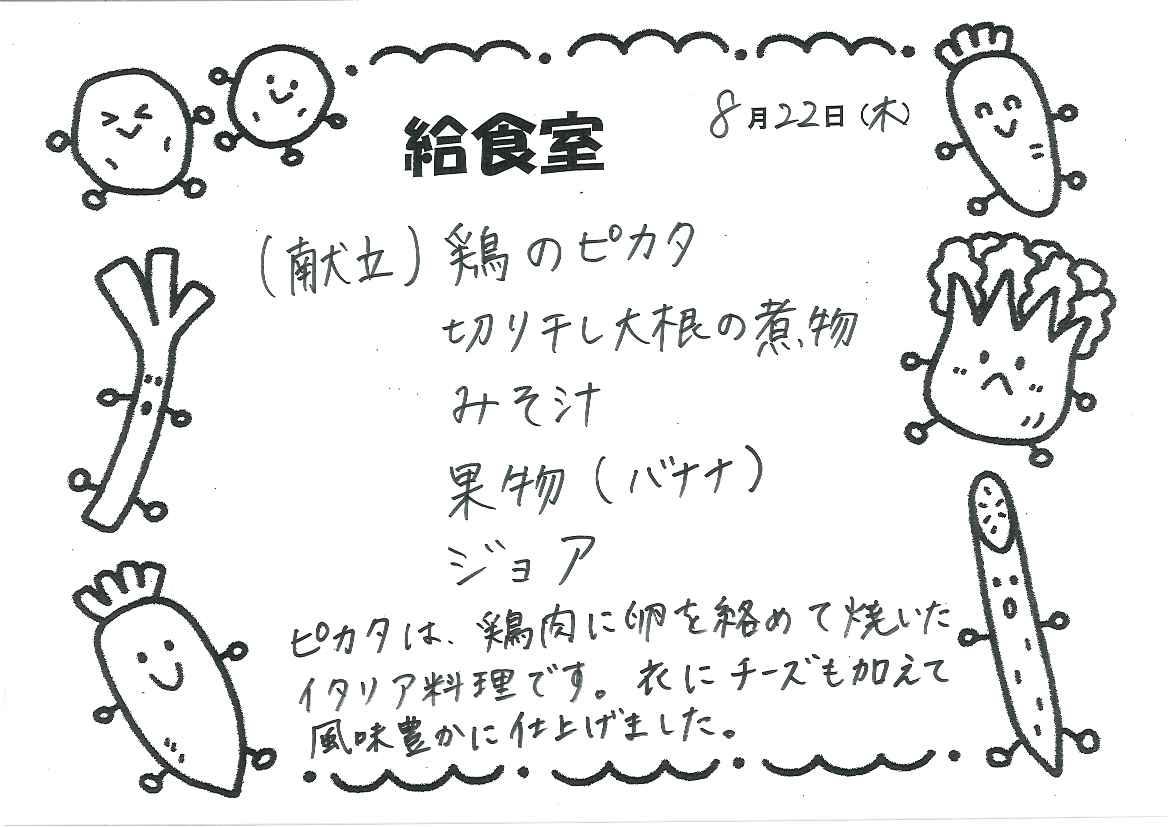 給食室
8月22日(木)
(献立)鶏のピカタ
切り干し大根の煮物
みそ汁
果物(バナナ)
ジョア
ピカタは、鶏肉に卵を絡めて焼いた
イタリア料理です。衣にチーズも加えて
風味豊かに仕上げました。